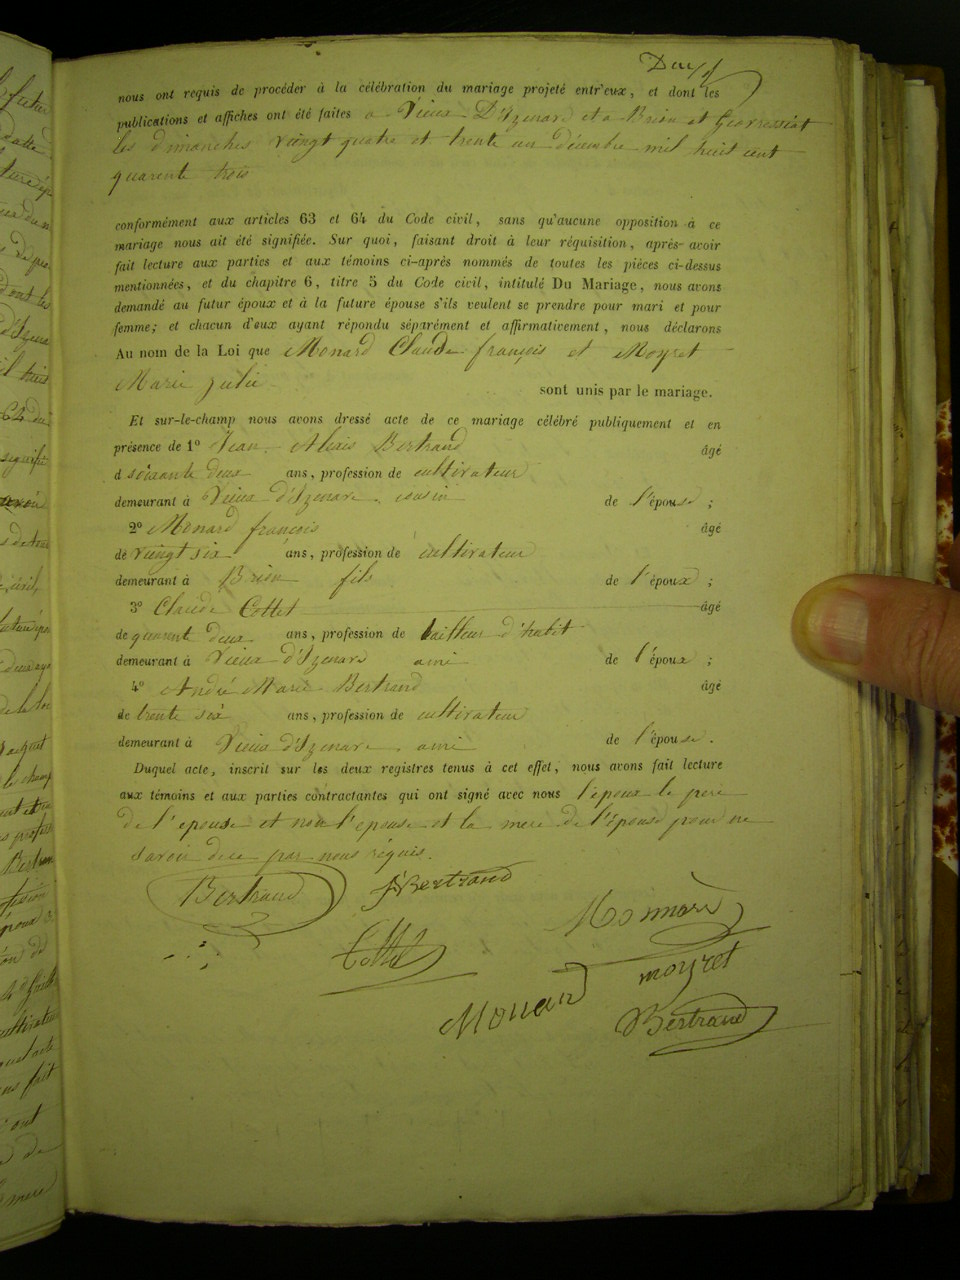 nous ont requis de procéder à la célébration du mariage projeté entr'eux, et dont les
publications et affiches ont été faites a Vieux D'Izenard et a Brion et Géovressiat
les dimanches vingt quatre et trente un décembre mil huit cent
quarente trois
conformément aux articles 63 et 64 du Code civil, sans qu'aucune opposition à ce
mariage nous ait été signifiée. Sur quoi, faisant droit à leur réquisition, après-avoir
fait lecture aux parties et aux témoins ci-après nommés de toutes les pièces ci-dessus
mentionnées, et du chapitre 6, titre 5 du Code civil, intitulé Du Mariage, nous avons
demandé au futur époux et à la future épouse s'ils veulent se prendre pour mari et pour
femme; et chacun d'eux ayant répondu séparément et affirmaticement, nous déclarons
Au nom de la Loi que Monard Claude françois et Moyret
Marie julie sont unis par le mariage.
Et sur-le-champ nous avons dressé acte de ce mariage célébré publiquement et en
présence de 1º Jean Alexis Bertrand âgé
d soixante deux ans, profession de cultivateur
demeurant à Vieux d'Izenave cousin de l'épouse ;
2º Monard françois âgé
de vingt six ans, profession de cultivateur
demeurant à Brion fils de l'époux ;
3º Claude Cottet âgé
de quarent deux ans, profession de tailleur d'habit
demeurant à Vieux d'Izenave ami de l'époux ;
4º André Marie Bertrand âgé
de trente six ans, profession de cultivateur
demeurant à Vieux d'Izenave ami de l'épouse.
Duquel acte, inscrit sur les deux registres tenus à cet effet, nous avons fait lecture
aux témoins et aux parties contractantes qui ont signé avec nous l'époux le pere
de l'epouse et non l'epouse et la mere de l'épouse pour ne
savoir de ce par nous réquis.
Bertrand J Bertrand
Monnard
Cottet
moyret
Monard
Bertrand